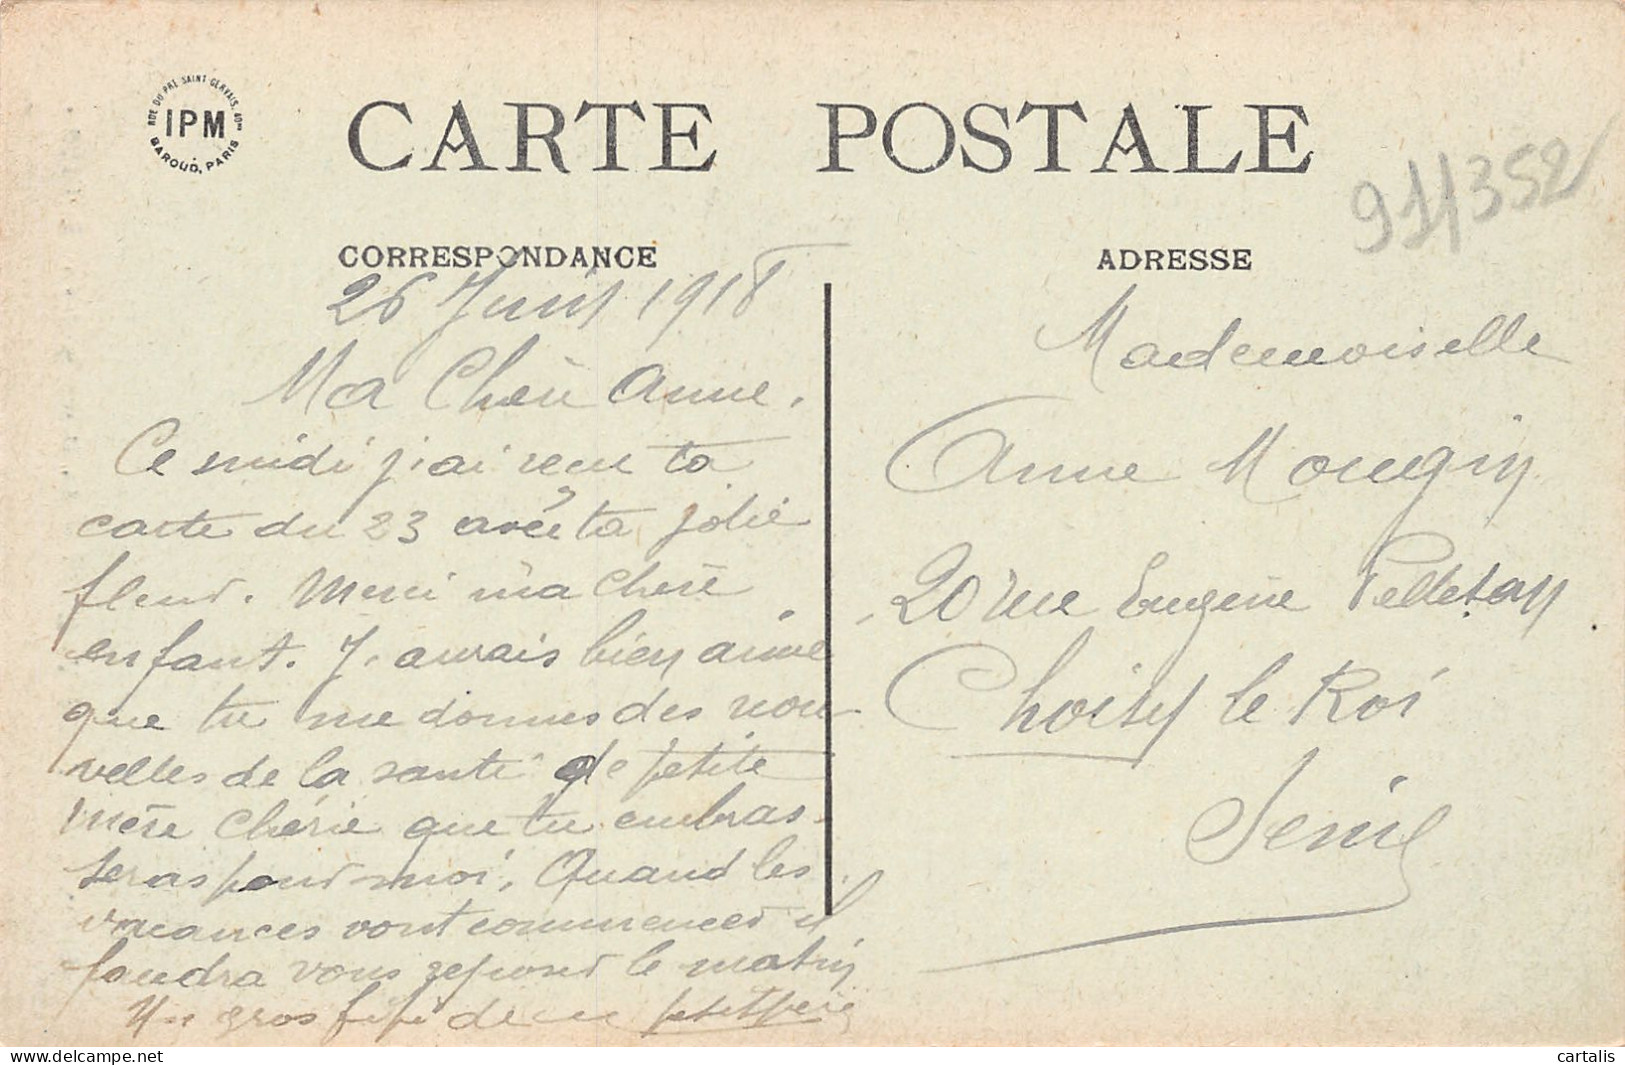 RUE DU PRÉ SAINT GERVAIS, 40bis
IPM
BAROUD, PARIS
CARTE POSTALE
91/352
CORRESPONDANCE
ADRESSE
26 Juin 1918
Ma Chère Anne.
Ce midi j'ai reçu ta
carte du 23 avec ta jolie
fleur. Merci ma chère
enfant. J'aurais bien aimé
que tu me donnes des nou-
velles de la santé de petite
mère chérie que tu embras-
seras pour moi. Quand les
vacances vont commencer il
faudra vous reposer le matin
Un gros de petit père
Mademoiselle
Anne Mougin
20 rue Eugène Pelletan
Choisy le Roi
Seine
delcampe.net
cartalis